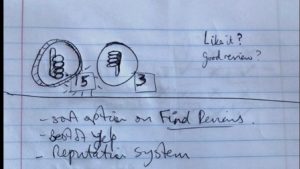 Like it?
good review?
5
3
- sort option on Find Reviews.
- best of yelp
- Reputation System